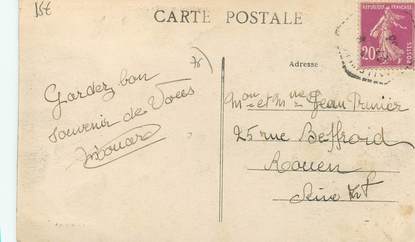 15€
CARTE POSTALE
REPUBLIQUE FRANÇAISE
20c
POSTES
Adresse
Gardez bon
souvenir de Vous
Mon et Mme Jean Prunier
25 rue Beffroid
Rouen
Seine Inf